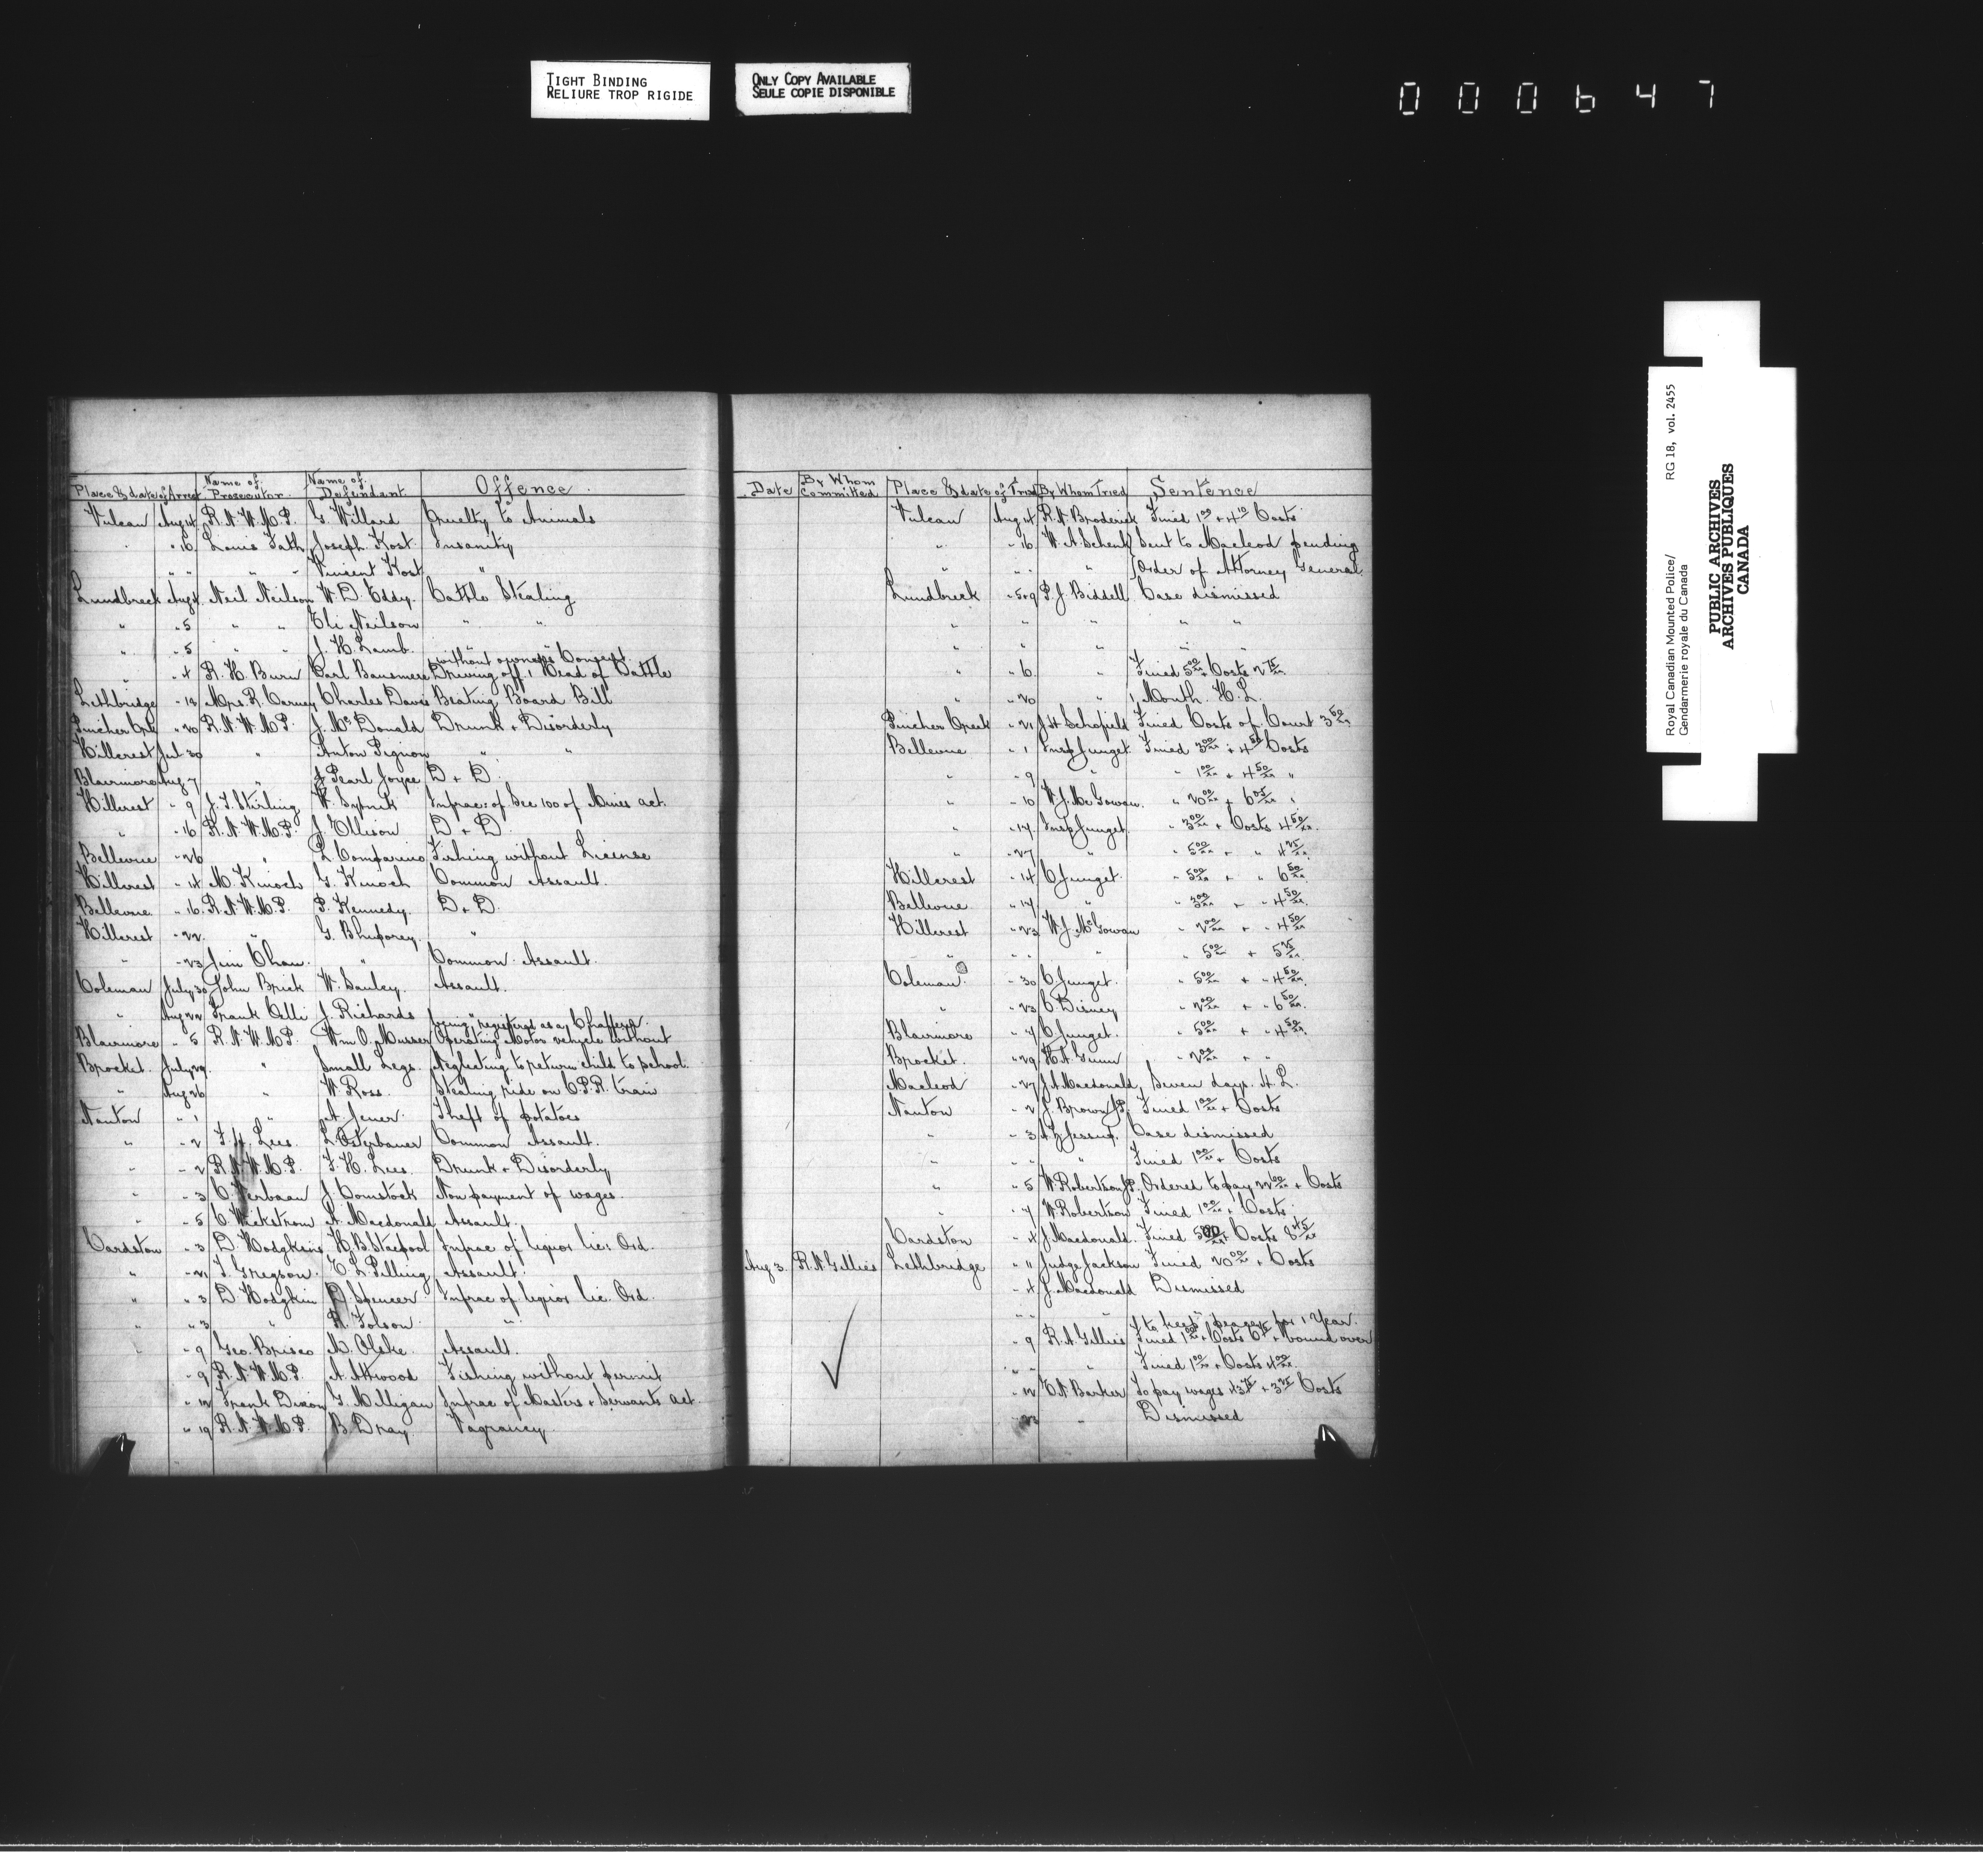 TIGHT BINDING
RELIURE TROP RIGIDE
ONLY COPY AVAILABLE
SEULE COPIE DISPONIBLE
000647
Royal Canadian Mounted Police/ RG 18, vol. 2455
Gendarmerie royale du Canada
PUBLIC ARCHIVES
ARCHIVES PUBLIQUES
CANADA
Place & date of Arrest Name of Prosecutor Name of Defendant Offence. Date By Whom Committed Place & date of Trial By Whom Tried Sentence
Vulcan Aug 14 R.N.W.M.P. G. Willard Cruelty to Animals Vulcan Aug 14 R.N. Broderick Fined 1 00 + 4 10 Costs
" 16 Louis Fath Joseph Kost Insanity " " 16 W.A. Schenk Sent to Macleod pending
" " " " Vincent Kost " " " " " Order of Attorney General
Lundbreck Aug 4 Neil Neilson W.D. Eddy. Cattle Stealing Lundbreck " 5+9 P.J. Biddell Case dismissed
" " 5 " " Eli Neilson " " " " " " "
" " 5 " " J.H. Lamb. " " " " " " "
without owners Consent
" " 4 R.H. Burn Carl Bansmere Driving off 1 Head of Cattle " " 6 " Fined 5 00 Costs 2 75
Lethbridge " 12 Mrs. R. Carney Charles Davis Beating Board Bill " " 20 " 1 Month. H.L.
Pincher Crk " 20 R.N.W.M.P. J. McDonald Drunk + Disorderly Pincher Creek " 21 J.H. Schofield Fined Costs of Court 3 50
Hillcrest Jul 30 " Anton Pignon " " Bellevue " 1 Insp Junget Fined 3 00 + 4 50 Costs
Blairmore Aug 7 " Pearl Joyce D + D. " " 9 " " 1 00 + 4 50 "
Hillcrest " 9 J.T. Stirling W. Sypnik Infrac: of Sec 100 of Mines act. " " 10 W.J. McGowan. " 20 00 + 6 05 "
" " 16 R.N.W.M.P. J. Ellison D + D. " " 17 Insp Junget. " 3 00 + Costs 4 50
Bellevue " 26 " L. Comparino Fishing without License " " 27 " " 5 00 + " 4 25
Hillcrest " 14 M. Kinoch G. Kinoch Common Assault. Hillcrest " 14 C. Junget. " 5 00 + " 6 50
Bellevue " 16 R.N.W.M.P. P. Kennedy. D + D. Bellevue " 17 " " 3 00 + " 4 50
Hillcrest " 22 " G. " Hillcrest " 23 W.J. McGowan " 2 00 + " 4 50
" " 23 Jim Chow. " Common Assault. " " " " " 5 00 + 5 25
Coleman July 30 John Brick W. Sauley. Assault. Coleman. " 30 C. Junget. " 5 00 + " 4 50
" Aug 22 Frank Celli J. Richards " " " 23 C. Disney " 2 00 + " 6 50
being registered as a Chaffeur.
Blairmore " 5 R.N.W.M.P. Wm O. Musser Operating Motor vehicle without Blairmore " 7 C. Junget. " 5 00 + " 4 50
Brocket. July 29 " Small Legs. Neglecting to return child to school. Brocket. " 29 H.A. Gunn " 2 00 + "
" Aug 26 " W. Ross. Stealing ride on C.P.R. train Macleod " 27 J.A. Macdonald, Seven days. H.L.
Nanton " 1 " A. Jener. Theft of potatoes Nanton " 2 J. Brown J.P. Fined 1 00 + Costs
" " 2 F.H. Lees. L. Osterbauer Common Assault. " " 3 Jessup. Case dismissed
" " 2 R.N.W.M.P. F.H. Lees. Drunk + Disorderly " " " " Fined 1 00 + Costs
" " 3 C. Verbaan J. Comstock Non payment of wages. " " 5 W. Robertson J.P. Ordered to pay 22 00 + Costs
" " 5 C. Wickstrom A. Macdonald Assault. " " 7 W. Robertson Fined 1 00 + Costs.
Cardston " 3 D. Hodgkins H.B. Stacpool Infrac of liquor lic: Ord. Cardston " 4 J. Macdonald. Fined 50 00 + Costs 8 45
" " 21 T. Gregson. E.L. Pilling Assault. Aug 3. R.A. Gillies Lethbridge " 11 Judge Jackson Fined 20 00 + Costs
" " 3 D. Hodgkin D. Spencer. Infrac of liquor lic. Ord. " 4 J. Macdonald Dismissed
" " 3 " R. Folson. " " " " "
to keep peace for 1 Year.
" " 9 Geo. Brisco M. Olske. Assault. " 9 R.A. Gillies Fined 1 00 + Costs + bound over
" 9 R.N.W.M.P. A. Attwood Fishing without permit " " " Fined 1 00 + Costs 4 00
" 12 Frank Dixon G. Milligan Infrac of Masters + Servants act. " 12 E.N. Barker To pay wages 43 75 + 3 25 Costs
" 19 R.N.W.M.P. B. Dray. Vagrancy " 23 " Dismissed